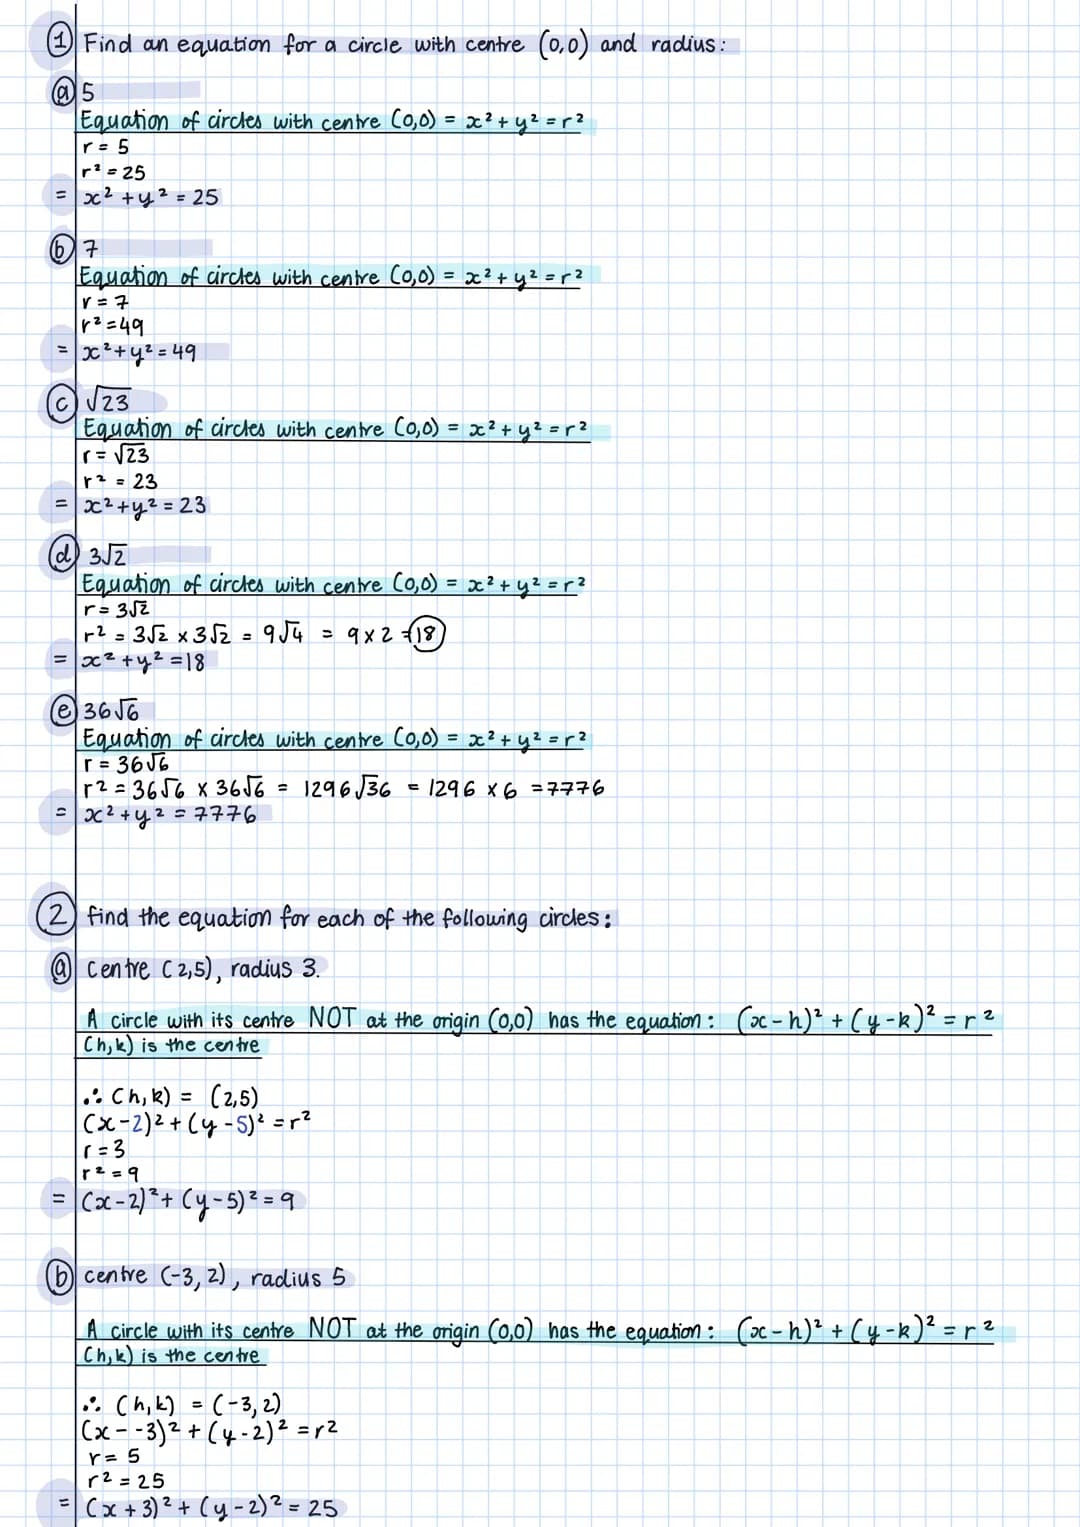 ① Find an equation for a circle with centre (0,0) and radius:
ⓐ 5
Equation of circles with centre (0,0) = x² + y² = r²
r = 5
r² = 25
= x² + y² = 25
ⓑ 7
Equation of circles with centre (0,0) = x² + y² = r²
r = 7
r² = 49
= x² + y² = 49
ⓒ √23
Equation of circles with centre (0,0) = x² + y² = r²
r = √23
r² = 23
= x² + y² = 23
ⓓ 3√2
Equation of circles with centre (0,0) = x² + y² = r²
r = 3√2
r² = 3√2 × 3√2 = 9√4 = 9 × 2 = 18
= x² + y² = 18
ⓔ 36√6
Equation of circles with centre (0,0) = x² + y² = r²
r = 36√6
r² = 36√6 × 36√6 = 1296√36 = 1296 × 6 = 7776
= x² + y² = 7776
② find the equation for each of the following circles:
ⓐ Centre (2,5), radius 3.
A circle with its centre NOT at the origin (0,0) has the equation: (x - h)² + (y - k)² = r²
(h,k) is the centre
∴ (h,k) = (2,5)
(x-2)² + (y-5)² = r²
r = 3
r² = 9
= (x-2)² + (y-5)² = 9
ⓑ centre (-3,2), radius 5
A circle with its centre NOT at the origin (0,0) has the equation: (x - h)² + (y - k)² = r²
(h,k) is the centre
∴ (h,k) = (-3,2)
(x - -3)² + (y-2)² = r²
r = 5
r² = 25
= (x+3)² + (y-2)² = 25